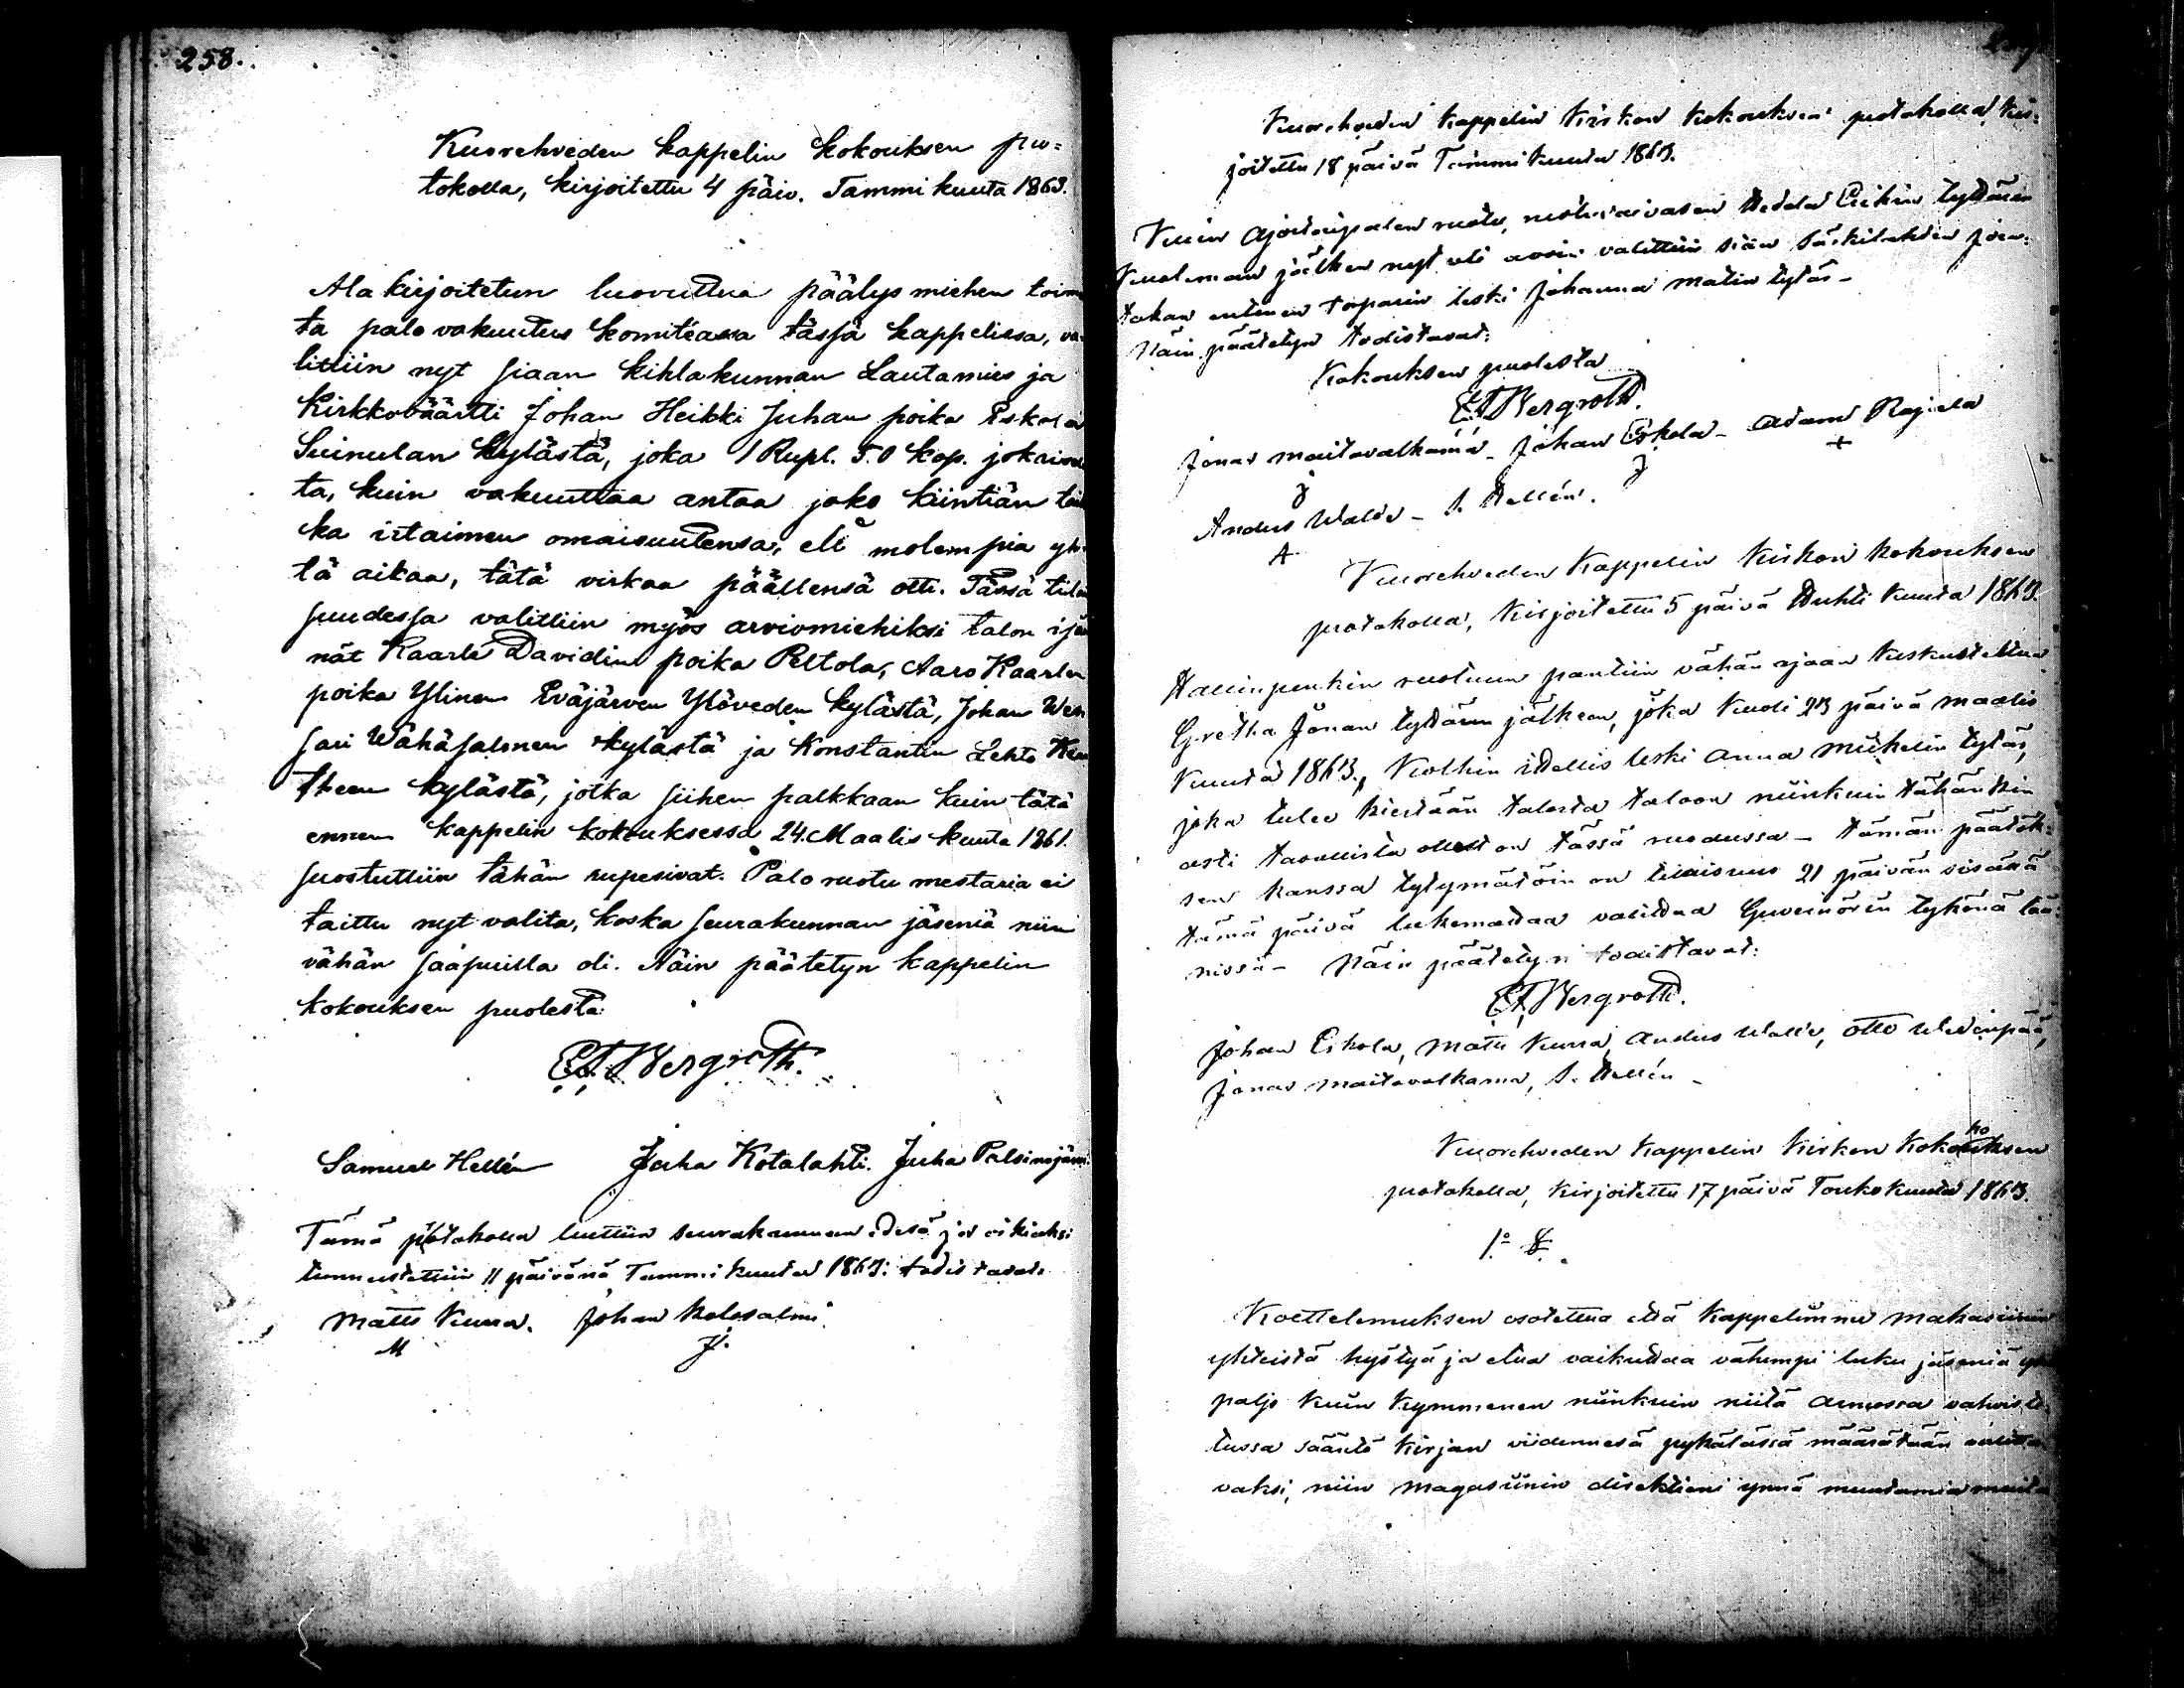 258.
Kuorehveden kappelin kokouksen pro=
tokolla, kirjoitettu 4 päiv. Tammi kuuta 1863.
Ala kirjoitetun luovuttua päälys miehen toim
ta palo vakuutus komiteassa tässä kappelissa, va
littiin nyt siaan kihlakunnan Lautamies ja
Kirkkoväärtti Johan Heikki Juhan poika Eskola
Suinulan kylästä, joka 1 Rupl. 50 kop. jokaisel
ta, kuin vakuuttaa antaa joko kiintiän tai
ka irtaimen omaisuutensa, eli molempia yh
tä aikaa, tätä virkaa päällensä otti. Tässä tilai
suudessa valittiin myös arviomiehiksi talon isän
nät Kaarle Davidin poika Peltola, Aaro Kaarlen
poika Ylinen Eväjärven Ylöveden kylästä, Johan Wen
sari Wähäsalmen kylästä ja Konstantin Lehto Keu
kylästä, jotka siihen palkkaan kuin tätä
ennen kappelin kokouksessa 24. Maalis kuuta 1861.
suostuttiin tähän rupesivat. Palo ruotu mestaria ei
taittu nyt valita, koska seurakunnan jäseniä niin
vähän saapuilla oli. Näin päätetyn kappelin
kokouksen puolesta:
E. F. Bergroth.
Samuel Hellén Juha Kotalahti. Juha Palsinajärvi
Tämä protokolla luettiin seurakunnan edesä ja oikiaksi
tunnustettiin 11 päivänä Tammi kuuta 1863: todistavat.
Matts Kurra. Johan Kolosalmi
M J.
Kuorehveden kappelin kirkon kokouksen protokolla, kir=
joitettu 18 päivä Tammi kuuta 1863.
Kuin ruotu, ruotuvaivasen Hedda Erikin tyttären
kuoleman jälken nyt oli avoin valittiin siän Särkilahden
takan entinen torparin leski Johanna Matin tytär –
Näin päätetyn todistavat:
Kokouksen puolesta
E F Bergroth.
Jonas Maitovalkama – Johan Eskola – Adam Rajala
J J +
Andus Walli – S. Hellén.
A
Kuorehveden Kappelin Kirkon kokouksen
protokolla, Kirjoitettu 5 päivä Huhti kuuta 1863.
Hallinpenkin ruotuun pantiin vähän ajaan keskusteltua
Gretha Jonan tyttären jälkeen, joka kuoli 23 päivä maalis
kuuta 1863, Kolhin itellis leski Anna Mickelin tytär,
joka tulee kiertään talosta taloon niinkuin tähänkin
asti tavallista ollut on tässä ruodussa – Tämän päätök=
sen kanssa tytymätöin on tilaisuus 21 päivän sisällä
tämä päivä lukemattaa valittaa Guvernörin tykönä lää=
nissä – Näin päätetyn todistavat:
E F Bergroth.
Johan Eskola, Matti Kurra, Andus Walli, Otto Uldinpää,
Jonas Maitovalkama, S. Hellén –
Kuorehveden Kappelin Kirkon Kokouksen
protokolla, kirjoitettu 17 päivä Toukokuuta 1863.
1º §.
Koettelemuksen osotettua että kappelimme makasiinin
yhteistä hyötyä ja etua vaikuttaa vähempi luku jäseniä yh
paljo kuin kymmenen niinkuin niitä armossa vahviste
tussa sääntö kirjan viidennesä pykälässä määrätään
vaksi, niin magasiinin direktioni ynnä muutamia muita